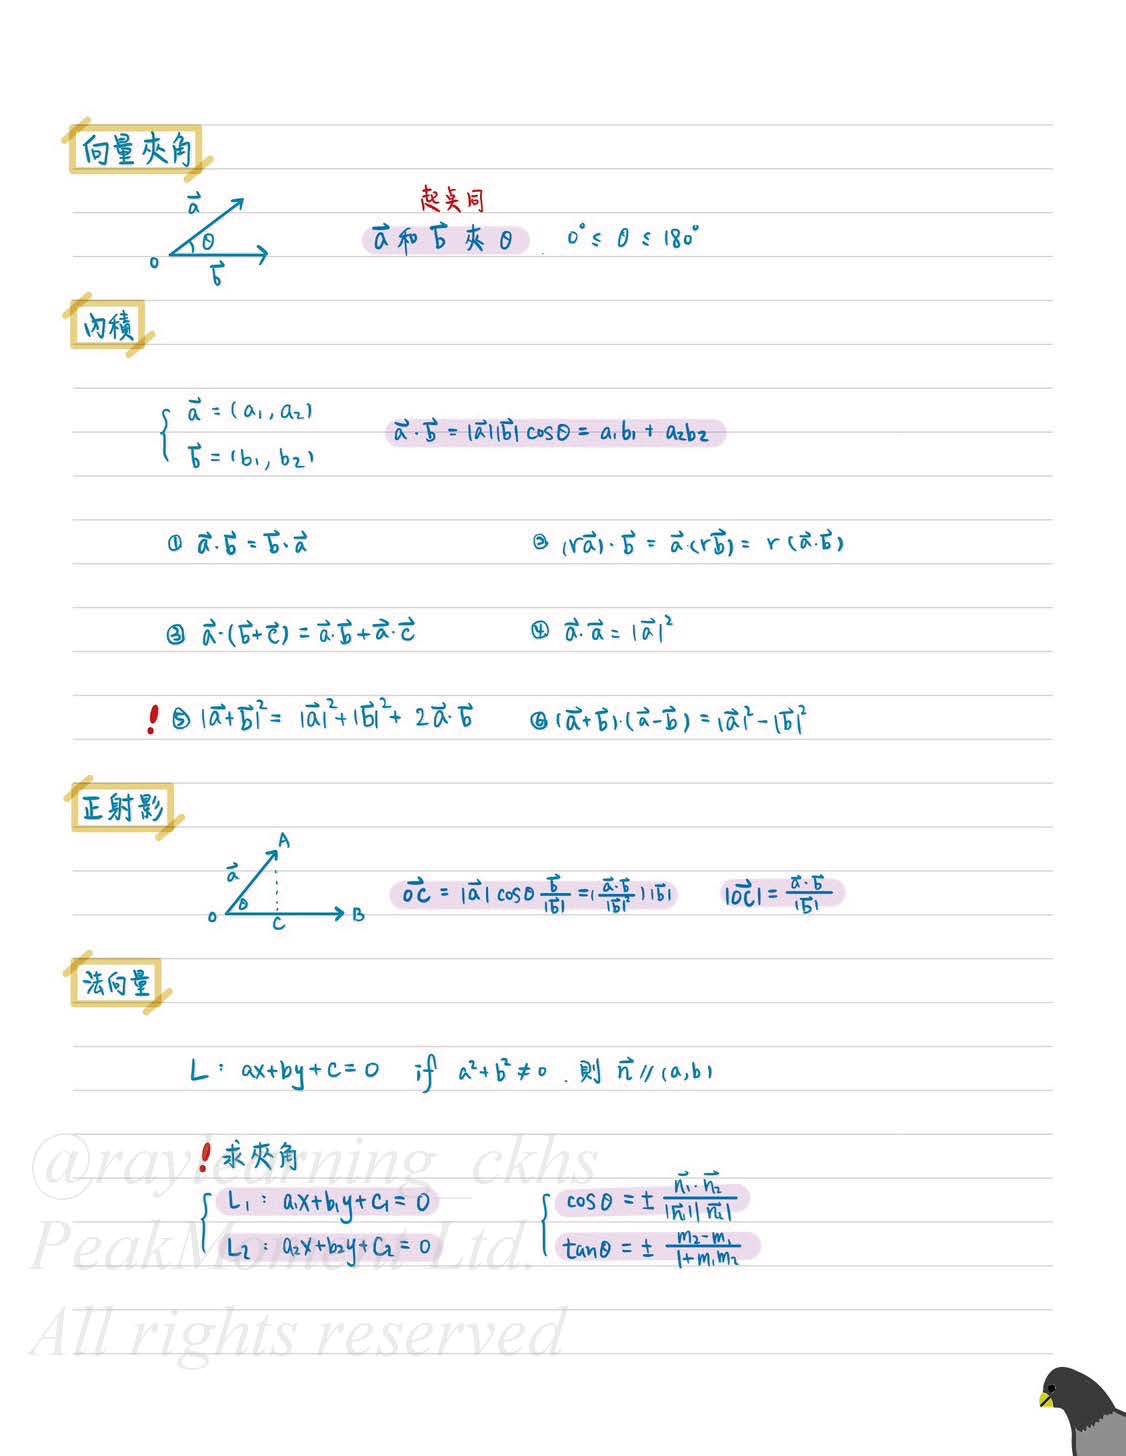 向量夾角
a⃗
θ
O
b⃗
起點同
a⃗ 和 b⃗ 夾 θ . 0° ≤ θ ≤ 180°
內積
{ a⃗ = (a₁, a₂)
b⃗ = (b₁, b₂)
a⃗ · b⃗ = |a⃗||b⃗| cosθ = a₁b₁ + a₂b₂
① a⃗ · b⃗ = b⃗ · a⃗
② (ra⃗) · b⃗ = a⃗ · (rb⃗) = r (a⃗ · b⃗)
③ a⃗ · (b⃗ + c⃗) = a⃗ · b⃗ + a⃗ · c⃗
④ a⃗ · a⃗ = |a⃗|²
! ⑤ |a⃗ + b⃗|² = |a⃗|² + |b⃗|² + 2a⃗ · b⃗
⑥ (a⃗ + b⃗) · (a⃗ - b⃗) = |a⃗|² - |b⃗|²
正射影
A
a⃗
θ
O
C
B
OC⃗ = |a⃗| cosθ b⃗/|b⃗| = (a⃗ · b⃗/|b⃗|²) |b⃗|
|OC⃗| = a⃗ · b⃗/|b⃗|
法向量
L : ax + by + c = 0 if a² + b² ≠ 0 . 則 n⃗ // (a, b)
! 求夾角
{ L₁ : a₁x + b₁y + c₁ = 0
L₂ : a₂x + b₂y + c₂ = 0
{ cosθ = ± n₁⃗ · n₂⃗/|n₁⃗||n₂⃗|
tanθ = ± m₂ - m₁/1 + m₁m₂
@raylearning_ckhs
PeakMoment Ltd.
All rights reserved